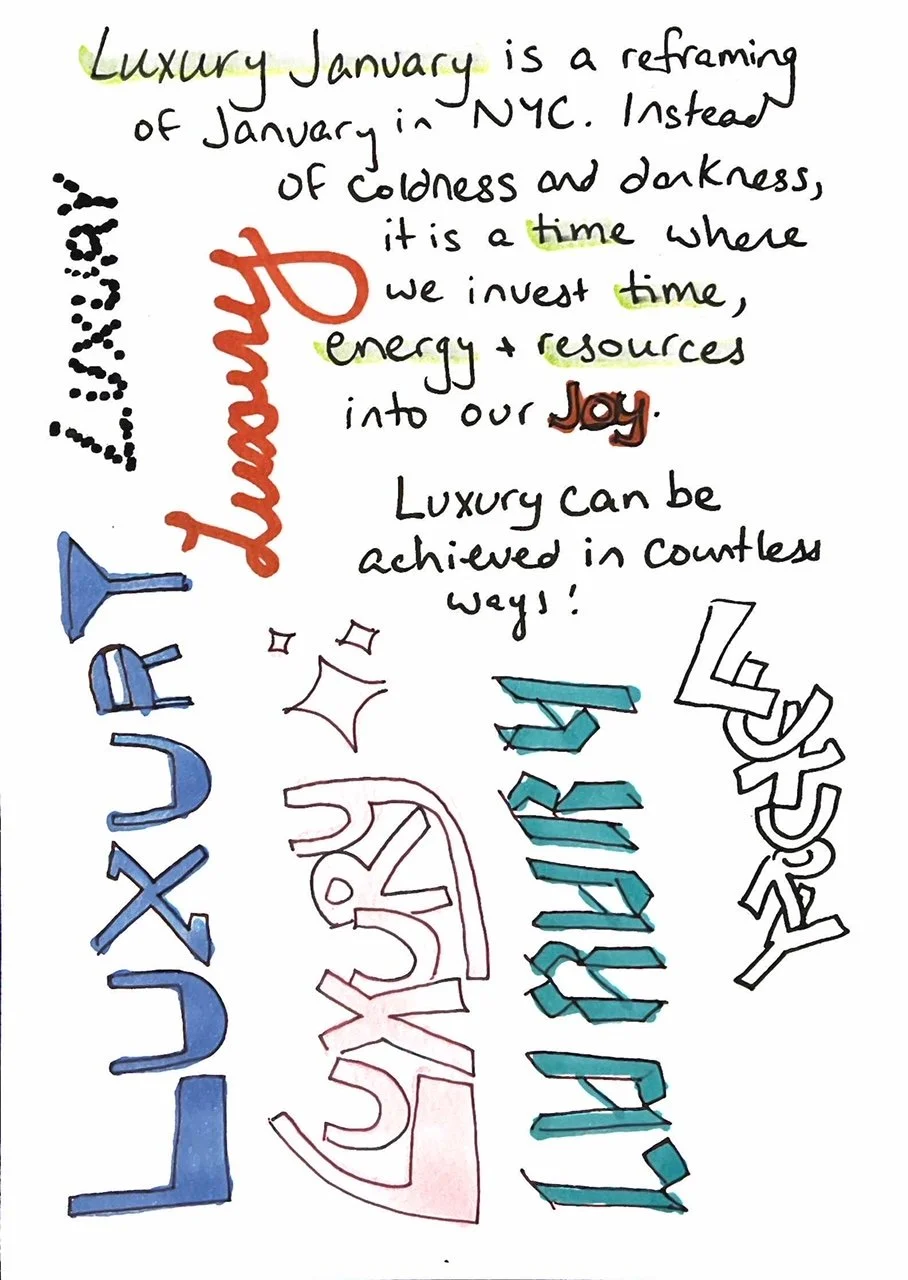 Luxury January is a reframing
of January in NYC. Instead
of coldness and darkness,
it is a time where
we invest time,
energy + resources
into our Joy.
Luxury can be
achieved in countless
ways!
Luxury
Luxury
LUXURY
LUXURY
LUXURY
luxury